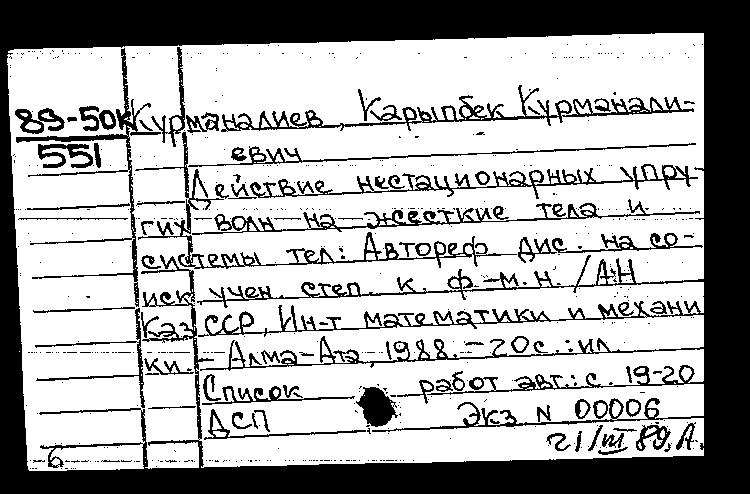 89-50к Курманалиев, Карыпбек Курманали-
551 евич
Действие нестационарных упру-
гих волн на жесткие тела и
системы тел: Автореф. дис. на со-
иск. учен. степ. к. ф.-м.н. /АН
Каз ССР, Ин-т математики и механи
ки. - Алма-Ата, 1988. - 20с.: ил.
Список работ авт.: с. 19-20
ДСП Экз. N 00006
6 21/III 89. А.